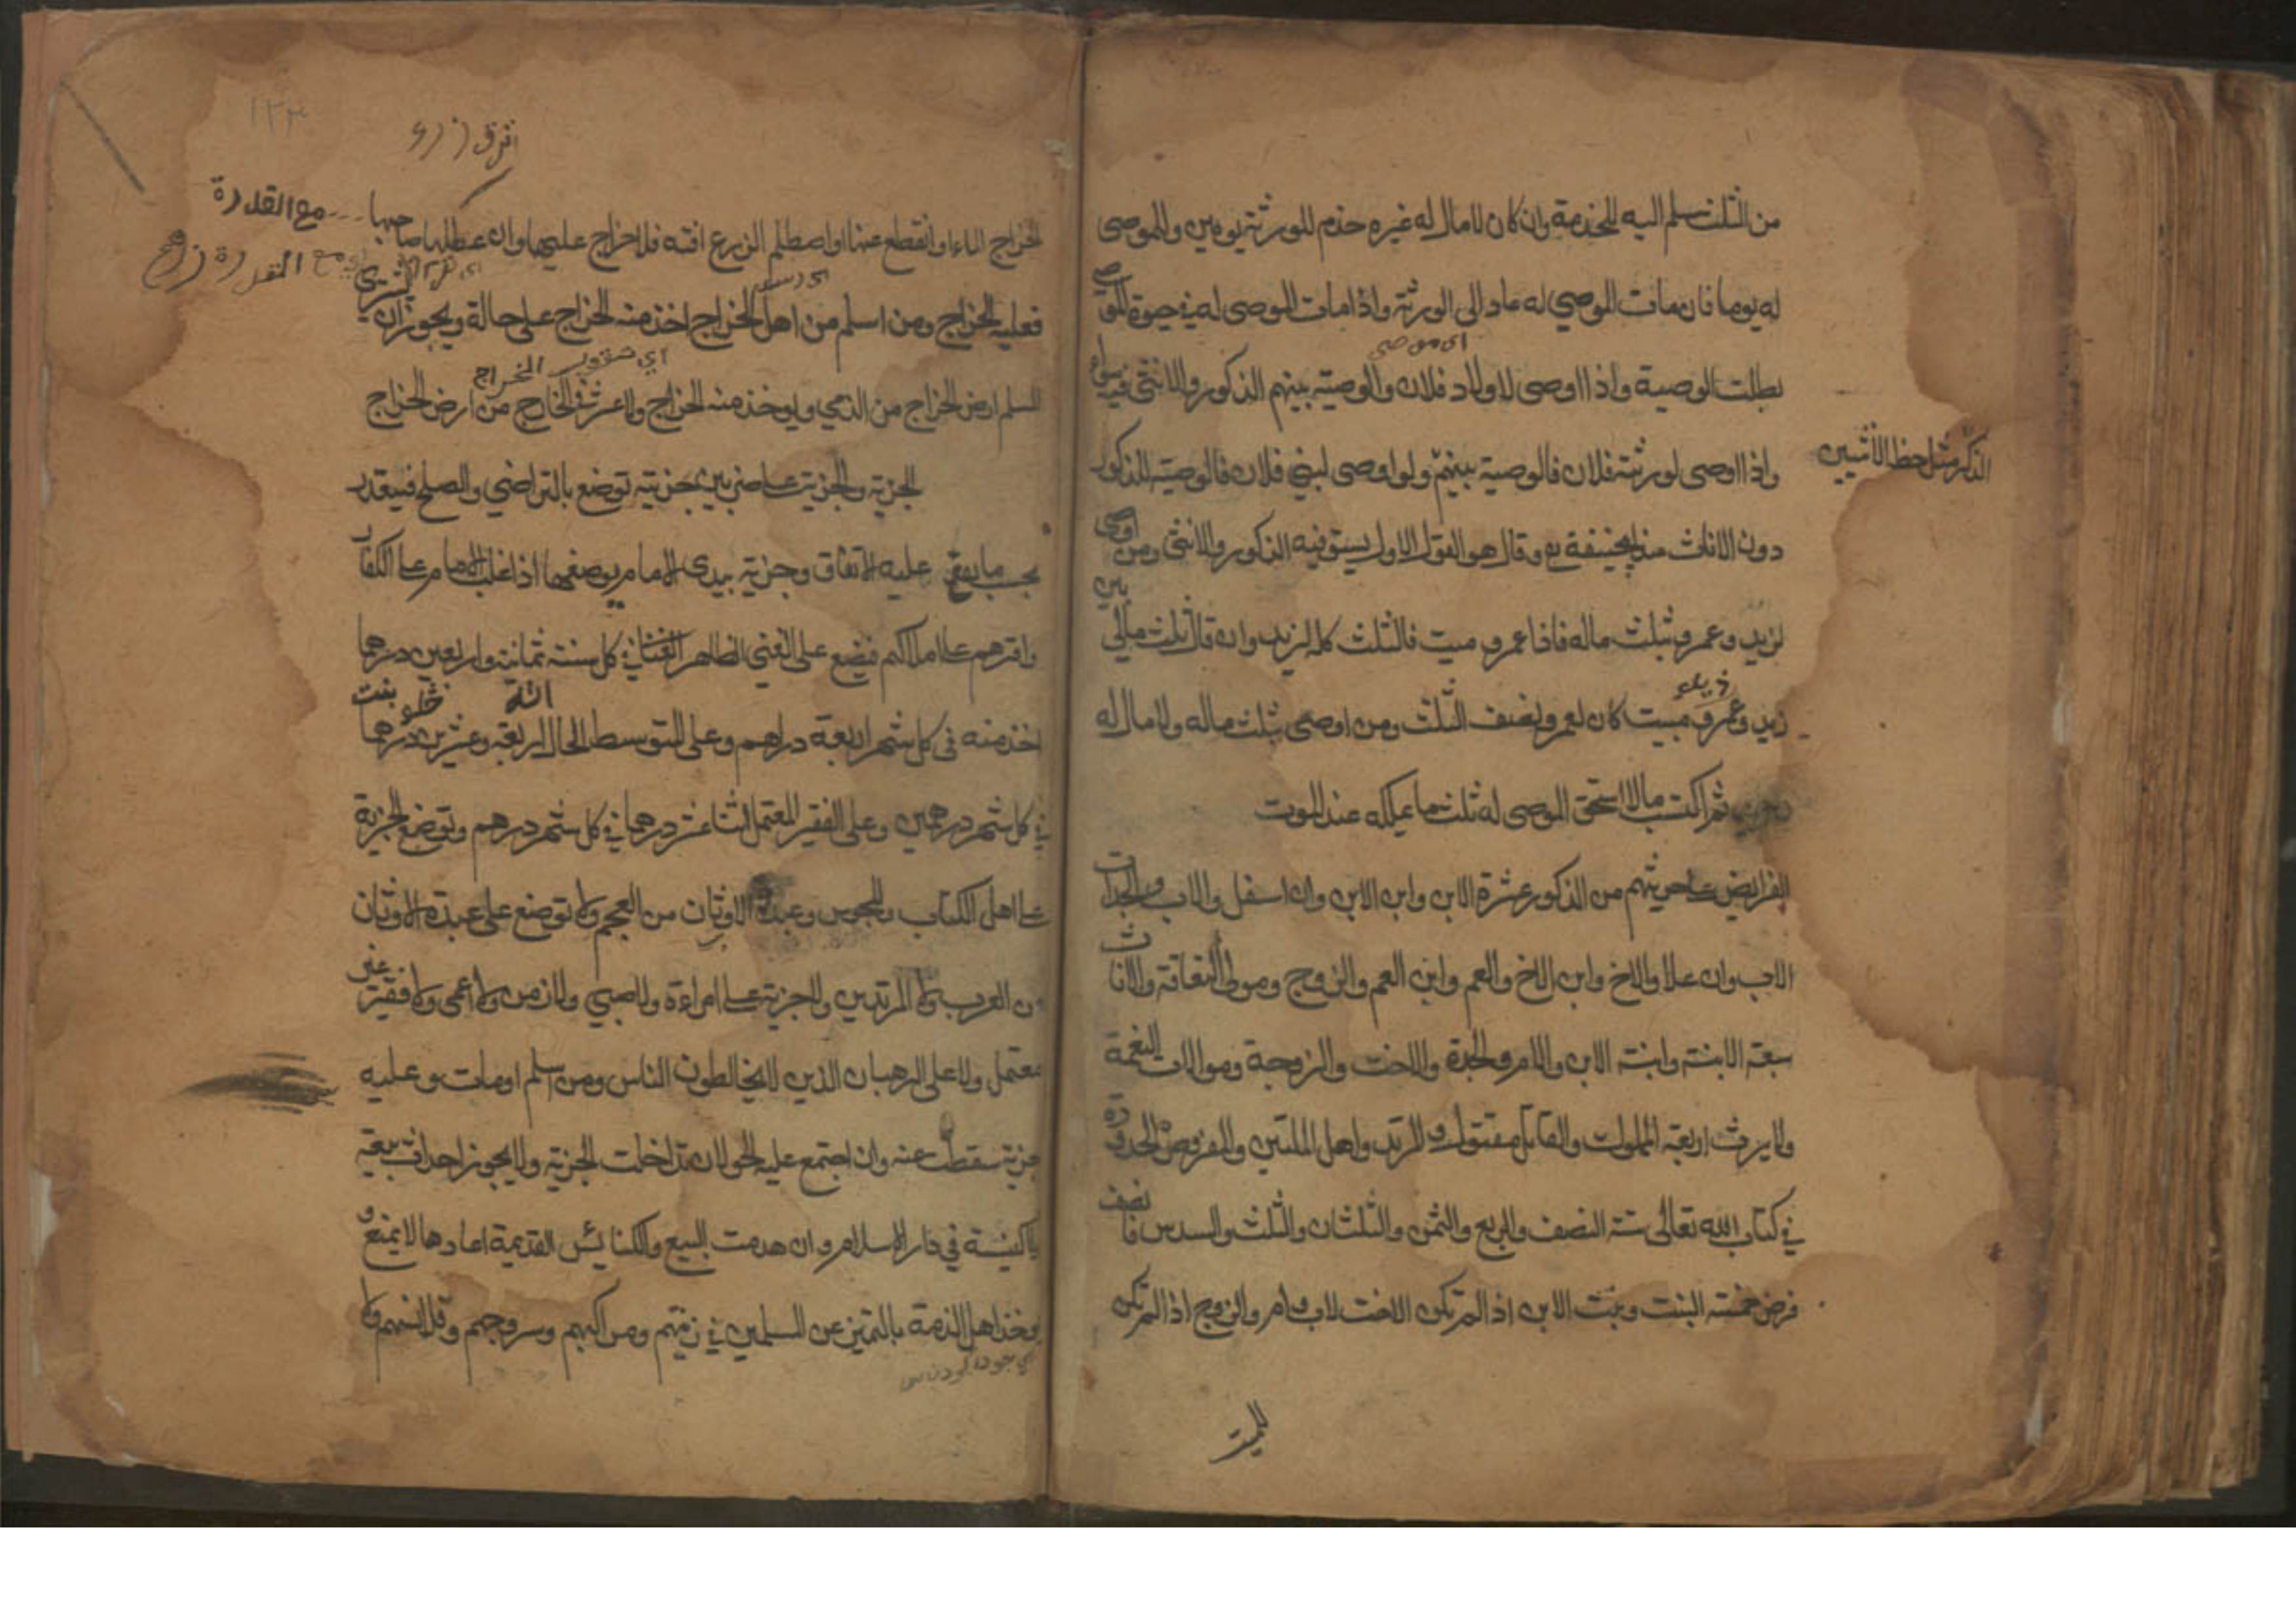 من الثلث سلم اليه للخدمة وان كان لا مال له غيره خدم للورثة يومين وللموصى
له يوما فان مات الموصي له عاد الى الورثة واذا مات الموصى له في حيوة الموصى
اى موصى
بطلت الوصية واذا اوصى لاولاد فلان والوصية بينهم الذكور والانثى فيه سواء
واذا اوصى لورثة فلان فالوصية بينهم ولو اوصى لبني فلان فالوصية للذكور
الذكر مثل حظ الانثيين
دون الاناث عند ابيحنيفة وقال هو القول الاول يستوفيه الذكور والانثى ومن اوصى
لزيد وعمرو بثلث ماله فاذا عمرو ميت فالثلث كله لزيد وان قال ثلث مالي بين
زيد وعمرو ميت كان لعمرو نصف الثلث ومن اوصى بثلث ماله ولا مال له
ثم اكتسب مالا استحق الموصى له ثلث ما يملكه عند الموت
الفرايض من الذكور عشرة الابن وابن الابن وان اسفل والاب والجد اب
الاب وان علا والاخ وابن الاخ والعم وابن العم والزوج ومولى النعاقة والاناث
سبعة الابنة وابنة الابن والام والجدة والاخت والزوجة وموالات النعمة
ولا يرث اربعة المملوك والقاتل مقتول والمرتد واهل الملتين والفروض المحدودة
في كتاب الله تعالى ستة النصف والربع والثمن والثلثان والثلث والسدس فا نصف
فرض خمسة البنت وبنت الابن اذ الم تكن الاخت لاب وام والزوج اذ الم تكن
للميت
١٢٣
الخراج الماء او انقطع عنها او اصطلم الزرع افته فلا خراج عليها وان عطلها صاحبها مع القدرة
فعليه الخراج ومن اسلم من اهل الخراج اخذ منه الخراج على حالة ويجوز ان يشترى
المسلم ارض الخراج من الذمي ويوخذ منه الخراج ولا عشر في الخارج من ارض الخراج
الجزية والجزية على ضربين جزية توضع بالتراضي والصلح فيتقدر
بحسب ما يقع عليه الاتفاق وجزية يبدى الامام بوضعها اذا غلب الامام على الكفار
واقرهم على املاكهم فيضع على الغني الظاهر الغنا في كل سنة ثمانية واربعين درهما
اخذ منه في كل شهر اربعة دراهم وعلى المتوسط الحال اربعة وعشرين درهما
في كل شهر درهمين وعلى الفقير المعتمل اثنا عشر درهما في كل شهر درهم وتوضع الجزية
على اهل الكتاب والمجوس وعبدة الاوثان من العجم ولا توضع على عبدة الاوثان
من العرب ولا المرتدين ولا جزية على امراءة ولا صبي ولا زمن ولا اعمى ولا فقير غير
معتمل ولا على الرهبان الذين لا يخالطون الناس ومن اسلم او مات وعليه
جزية سقطت عنه وان اجتمع عليه الحولان تداخلت الجزية ولا يجوز احداث بيعة
ولا كنيسة في دار الاسلام وان هدمت البيع والكنائس القديمة اعادها لا يمنع و
يوخذ اهل الذمة بالتميز عن المسلمين في زيهم ومراكبهم وسروجهم وقلانسهم ولا